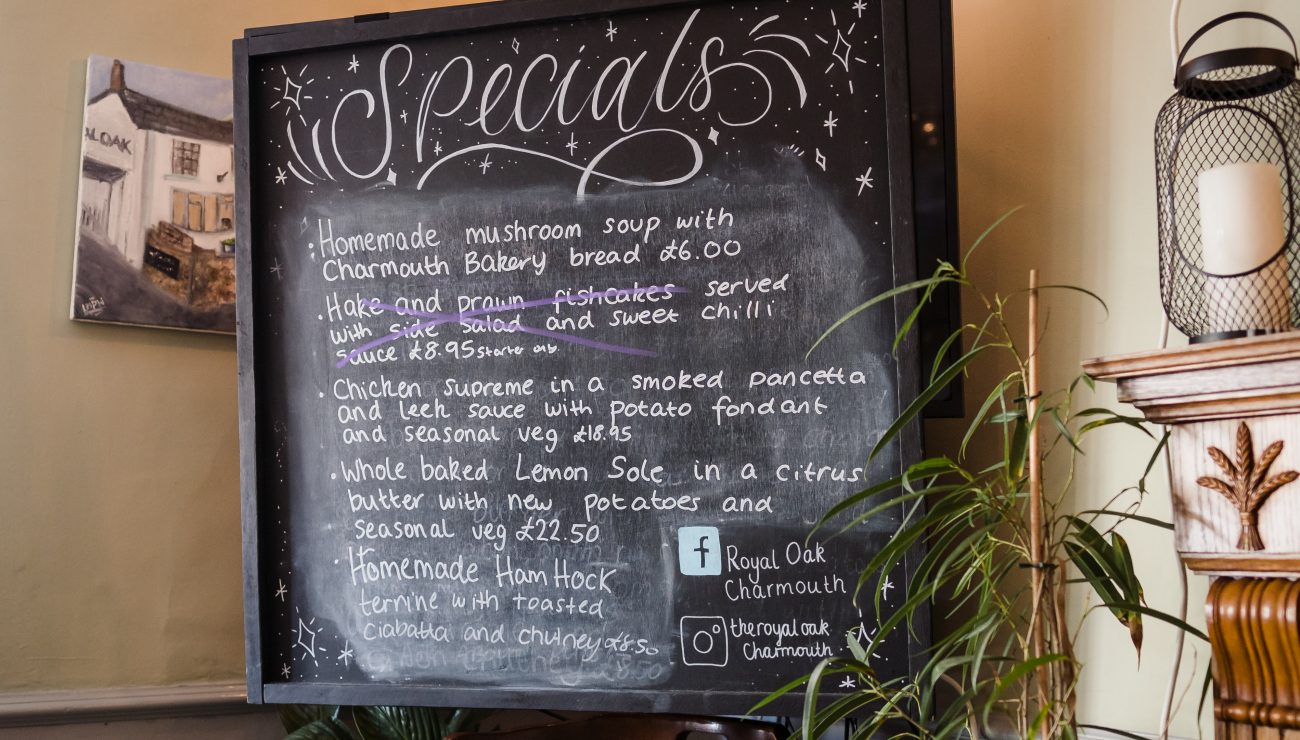 ALOAK
Specials
Homemade mushroom soup with
Charmouth Bakery bread £6.00
Hake and prawn fishcakes served
with side salad and sweet chilli
sauce £8.95 starter only.
Chicken supreme in a smoked pancetta
and leek sauce with potato fondant
and seasonal veg £18.95
Whole baked Lemon Sole in a citrus
butter with new potatoes and
seasonal veg £22.50
Homemade Ham Hock
ternine with toasted
ciabatta and chutney £8.50
f
Royal Oak
Charmouth
theroyaloak
Charmouth